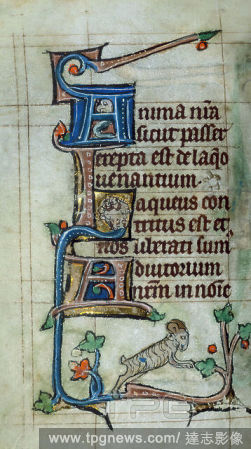 Anima nr̄a
sicut passer
erepta est de laq̄o
uenantium.
Laqueus con
tritus est et
nos liberati sum
Adiutorium
nr̄m in no̅ie
TPG
www.tpgnews.com/達志影像